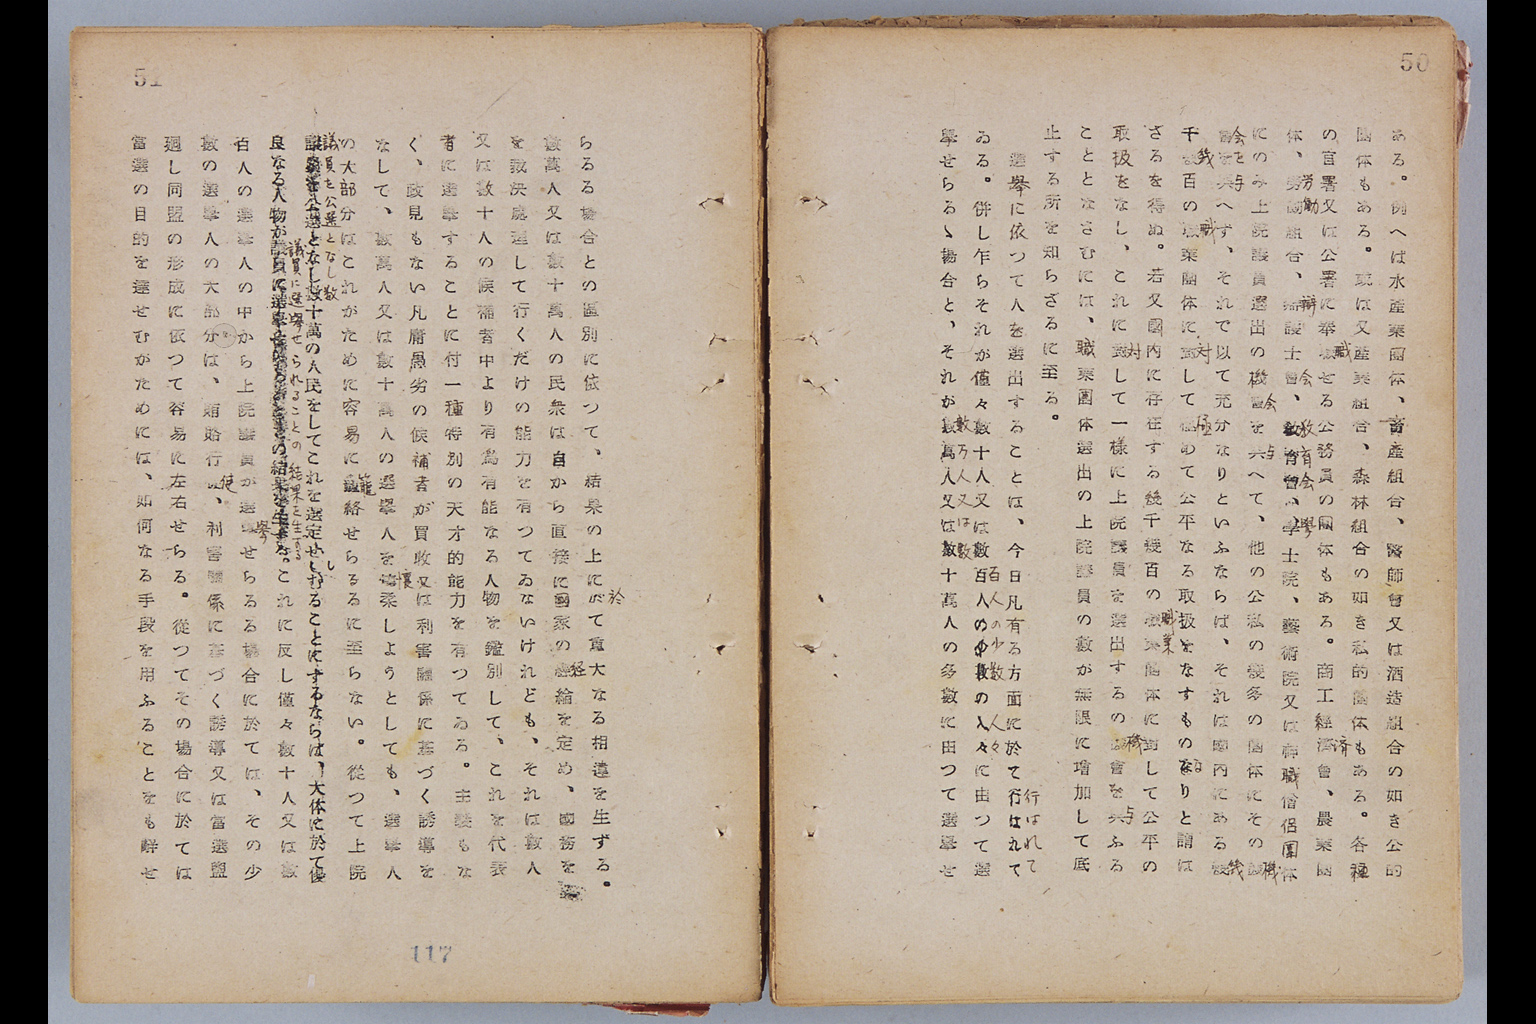 50
ある。例へば水産業團体、畜産組合、醫師會又は酒造組合の如き公的
團体もある。或は又産業組合、森林組合の如き私的團体もある。各種
の官署又は公署に奉職せる公務員の團体もある。商工經濟會、農業團
体、勞働組合、辯護士會、敎育會、學士院、藝術院又は神職僧侶團体
にのみ上院議員選出の機會を與へて、他の公私の幾多の團体にその機
會を與へず、それで以て充分なりといふならば、それは國內にある幾
千幾百の職業團体に對して極めて公平なる取扱をなすものなりと謂は
ざるを得ぬ。若又國內に存在する幾千幾百の職業團体に對して公平の
取扱をなし、これに對して一樣に上院議員を選出するの機會を與ふる
こととなさむには、職業團体選出の上院議員の數が無限に增加して底
止する所を知らざるに至る。
選擧に依つて人を選出することは、今日凡有る方面に於て行はれて
ゐる。併し乍らそれが僅々數十人又は數百人の少數の人々に由つて選
擧せらるゝ場合と、それが數萬人又は數十萬人の多數に由つて選擧せ
51
らるる場合との區別に依つて、結果の上に於て重大なる相違を生ずる。
數萬人又は數十萬人の民衆は自から直接に國家の經綸を定め、國務を
を裁決處理して行くだけの能力を有つてゐないけれども、それは數人
又は數十人の候補者中より有爲有能なる人物を鑑別して、これを代表
者に選擧することに付一種特別の天才的能力を有つてゐる。主義もな
く、政見もない凡庸愚劣の候補者が買收又は利害關係に基づく誘導を
なして、數萬人又は數十萬人の選擧人を懷柔しようとしても、選擧人
の大部分はこれがために容易に籠絡せらるるに至らない。從つて上院
議員を公選となし數十萬の人民をしてこれを選定せしむることにするならば、大体に於て優
良なる人物が議員に選擧せられることの結果を生ずる。これに反し僅々數十人又は數
百人の選擧人の中から上院議員が選擧せらるる場合に於ては、その少
數の選擧人の大部分は、賄賂行使、利害關係に基づく誘導又は當選盟
廻し同盟の形成に依つて容易に左右せらる。從つてその場合に於ては
當選の目的を達せむがためには、如何なる手段を用ふることをも辭せ
117